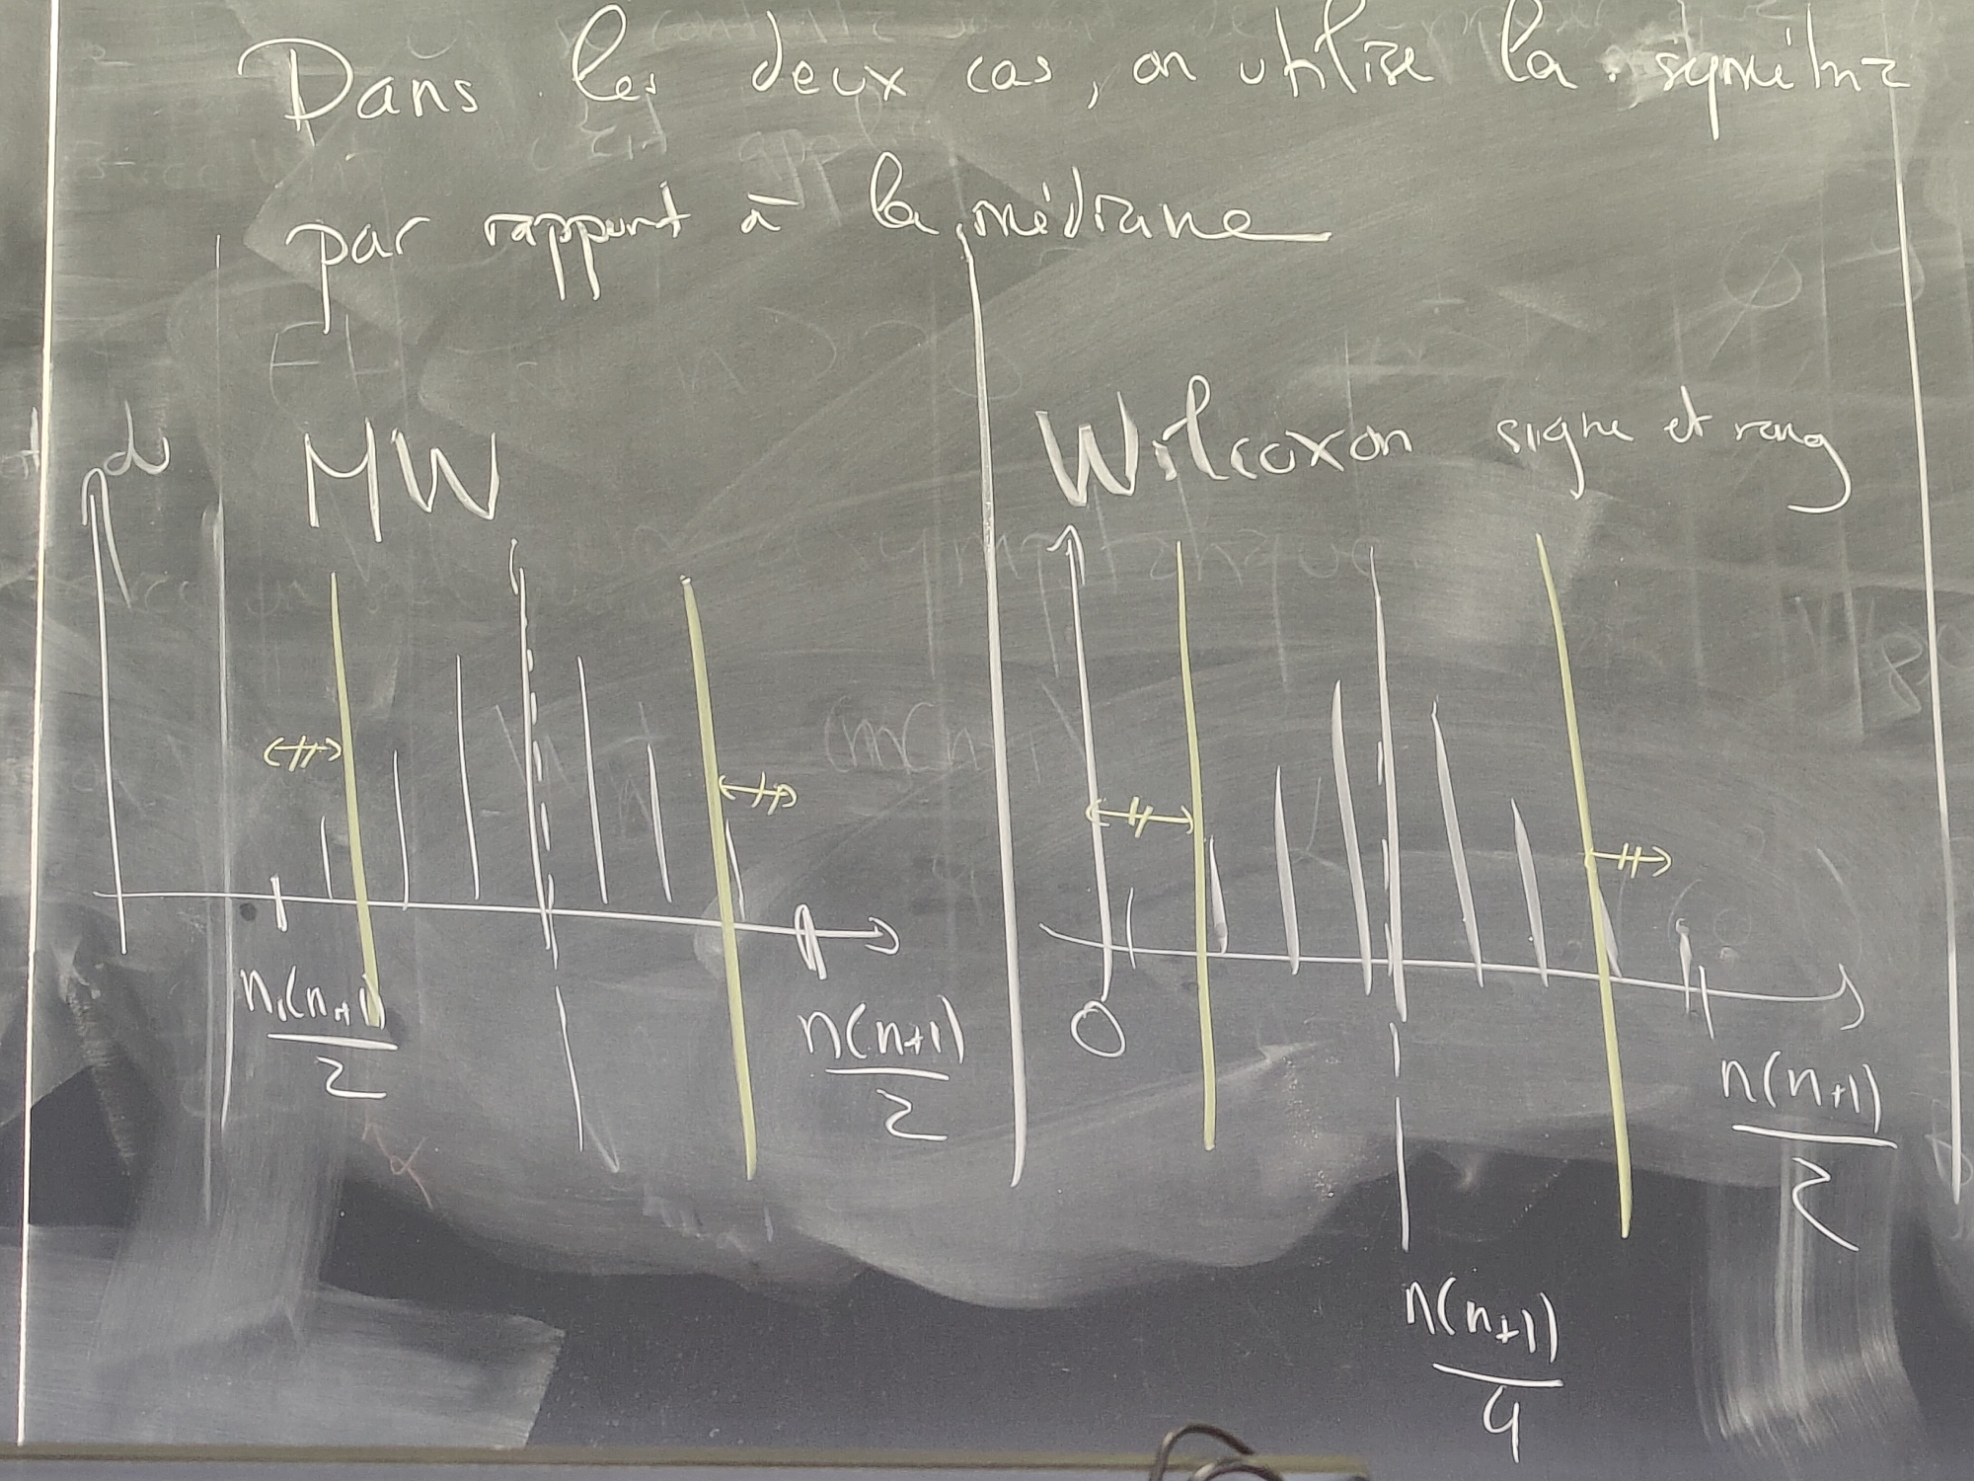 Dans les deux cas, on utilise la symétrie
par rapport à la médiane
MW
n₁(n+1)/2
n(n+1)/2
Wilcoxon signe et rang
0
n(n+1)/2
n(n+1)/4